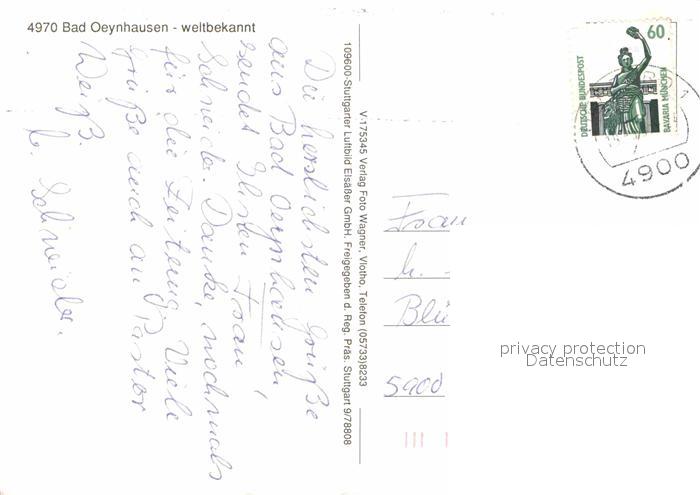 4970 Bad Oeynhausen - weltbekannt
Die herzlichsten Grüße
aus Bad Oeynhausen,
sendet Ihnen Frau
Schneider. Danke, nochmals
für die Zeitung. Viele
Grüße auch an Pastor
Weiß.
L. Schneider.
109600-Stuttgarter Luftbild Elsäßer GmbH. Freigegeben d. Reg. Präs. Stuttgart 9/78808
V-175345 Verlag Foto Wagner, Vlotho, Telefon (05733)8233
60
DEUTSCHE BUNDESPOST
BAVARIA MÜNCHEN
4900
Frau
Blü
5900
privacy protection
Datenschutz